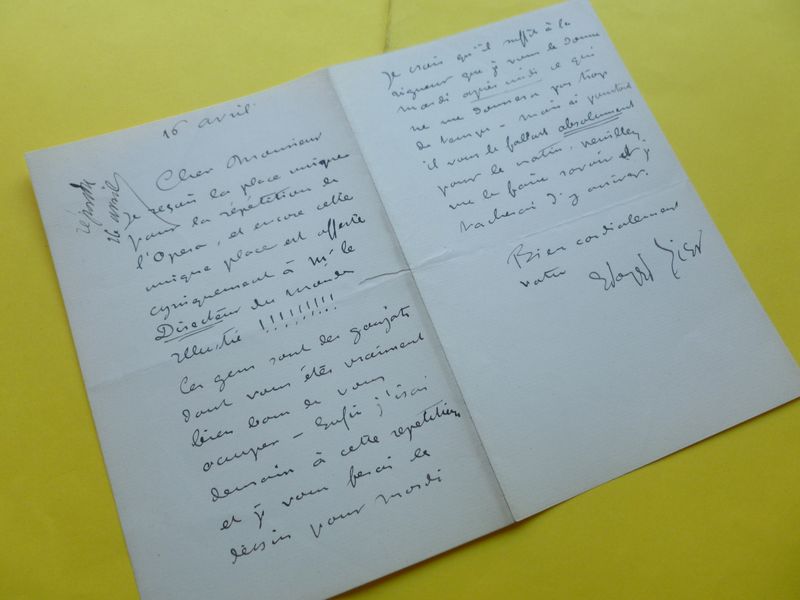 16 avril
répondu
16 avril
Cher Monsieur
Je reçois la place unique
pour la répétition de
l'Opera, et encore cette
unique place est offerte
cyniquement à Mr le
Directeur du Monde
illustré !!!!!!!!!
Ces gens sont des goujats
dont vous êtes vraiment
bien bon de vous
occuper - Enfin j'irai
demain à cette repetition
et je vous ferai le
dessin pour mardi
Je crois qu'il suffit à la
rigueur que je vous le donne
mardi après midi ce qui
ne me donnera pas trop
de temps - mais si
il vous le fallait absolument
pour le matin, veuillez
me le faire savoir et je
tacherai d'y arriver.
Bien cordialement
votre
Edouard Zier